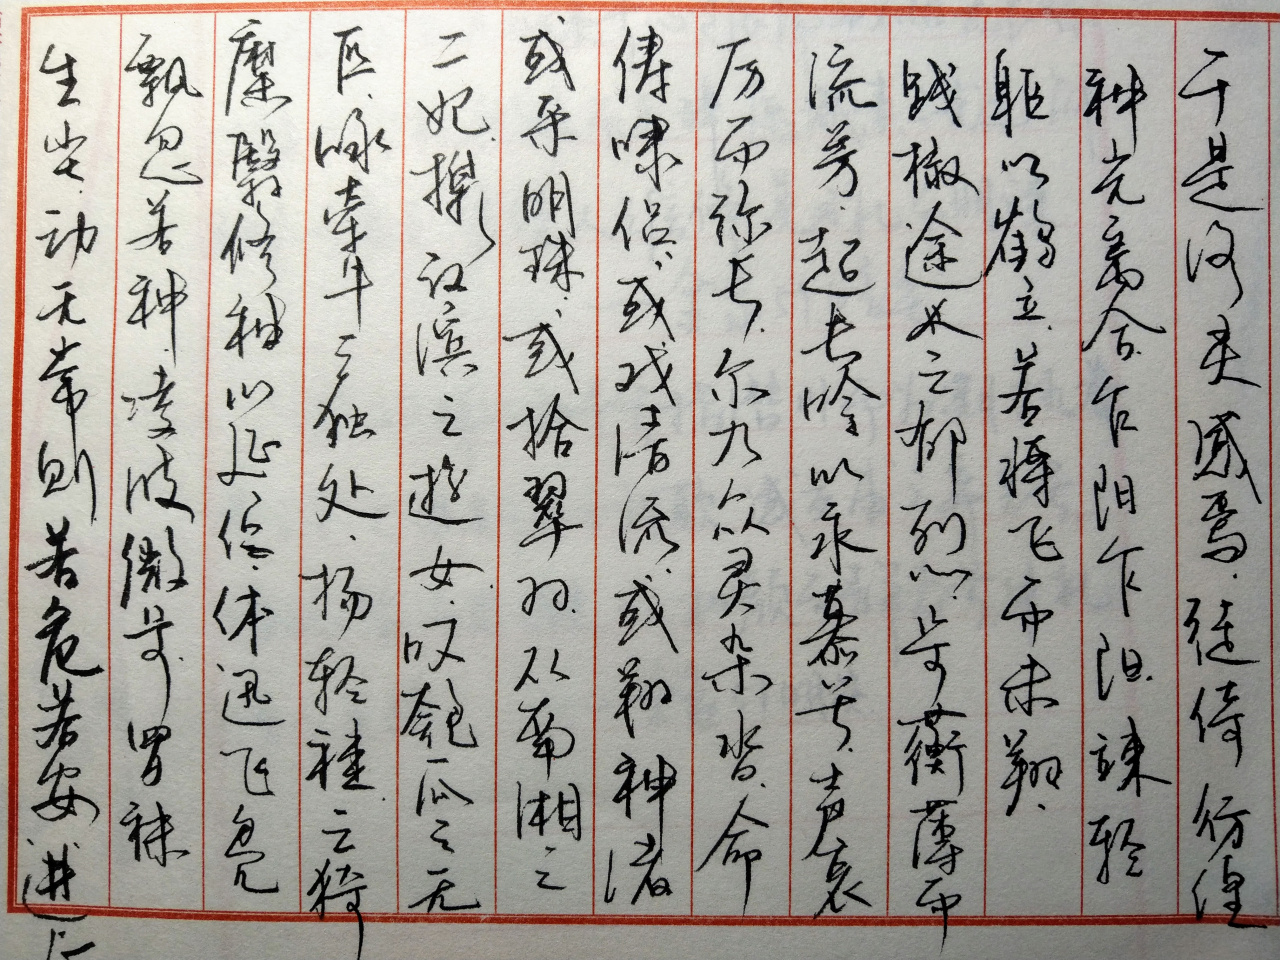 于是洛灵感焉.徙倚彷徨
神光离合.乍阴乍阳.竦轻
躯以鹤立.若将飞而未翔.
践椒途之郁烈步蘅薄而
流芳.超长吟以永慕兮.声哀
厉而弥长.尔乃众灵杂沓.命
俦啸侣.或戏清流.或翔神渚
或采明珠.或拾翠羽.从南湘之
二妃.携汉滨之游女.叹匏瓜之无
匹.咏牵牛之独处.扬轻袿之猗
靡翳修袖以延伫.体迅飞凫
飘忽若神.凌波微步.罗袜
生尘.动无常则若危若安.进止